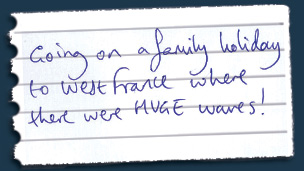 Going on a family holiday
to west France where
there were HUGE waves!